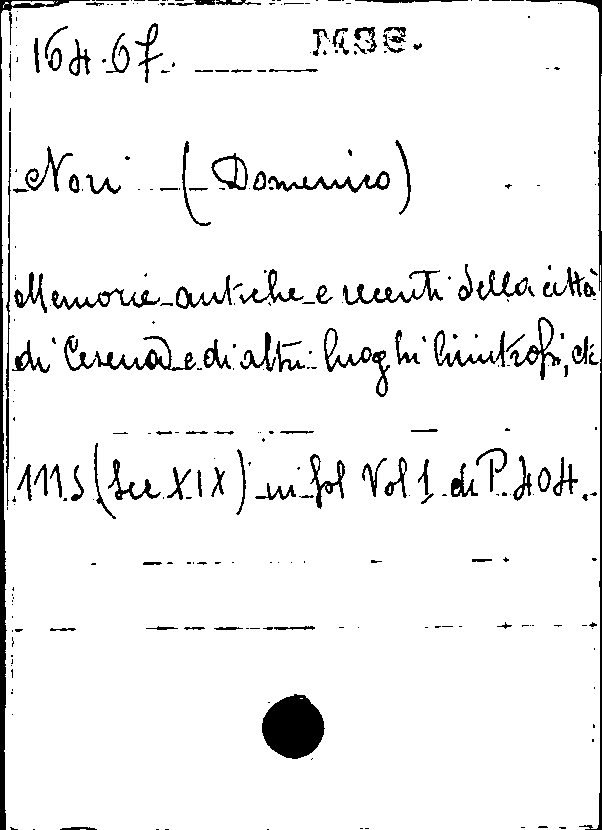 164.67. MSS.
Nori (Domenico)
Memorie antiche e recenti della città
di Cesena e di altri luoghi limitrofi, etc
MS (Sec XIX) in fol Vol 1 di P. 404.